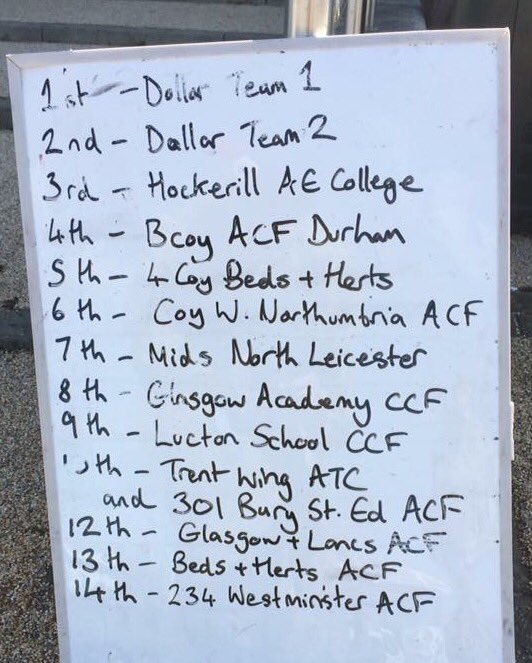 1st - Dollar Team 1
2nd - Dollar Team 2
3rd - Hockerill AE College
4th - Bcoy ACF Durham
5th - 4 Coy Beds + Herts
6th - Coy W. Northumbria ACF
7th - Mids North Leicester
8th - Glasgow Academy CCF
9th - Lucton School CCF
10th - Trent Wing ATC
and 301 Bury St. Ed ACF
12th - Glasgow + Lancs ACF
13th - Beds + Herts ACF
14th - 234 Westminster ACF